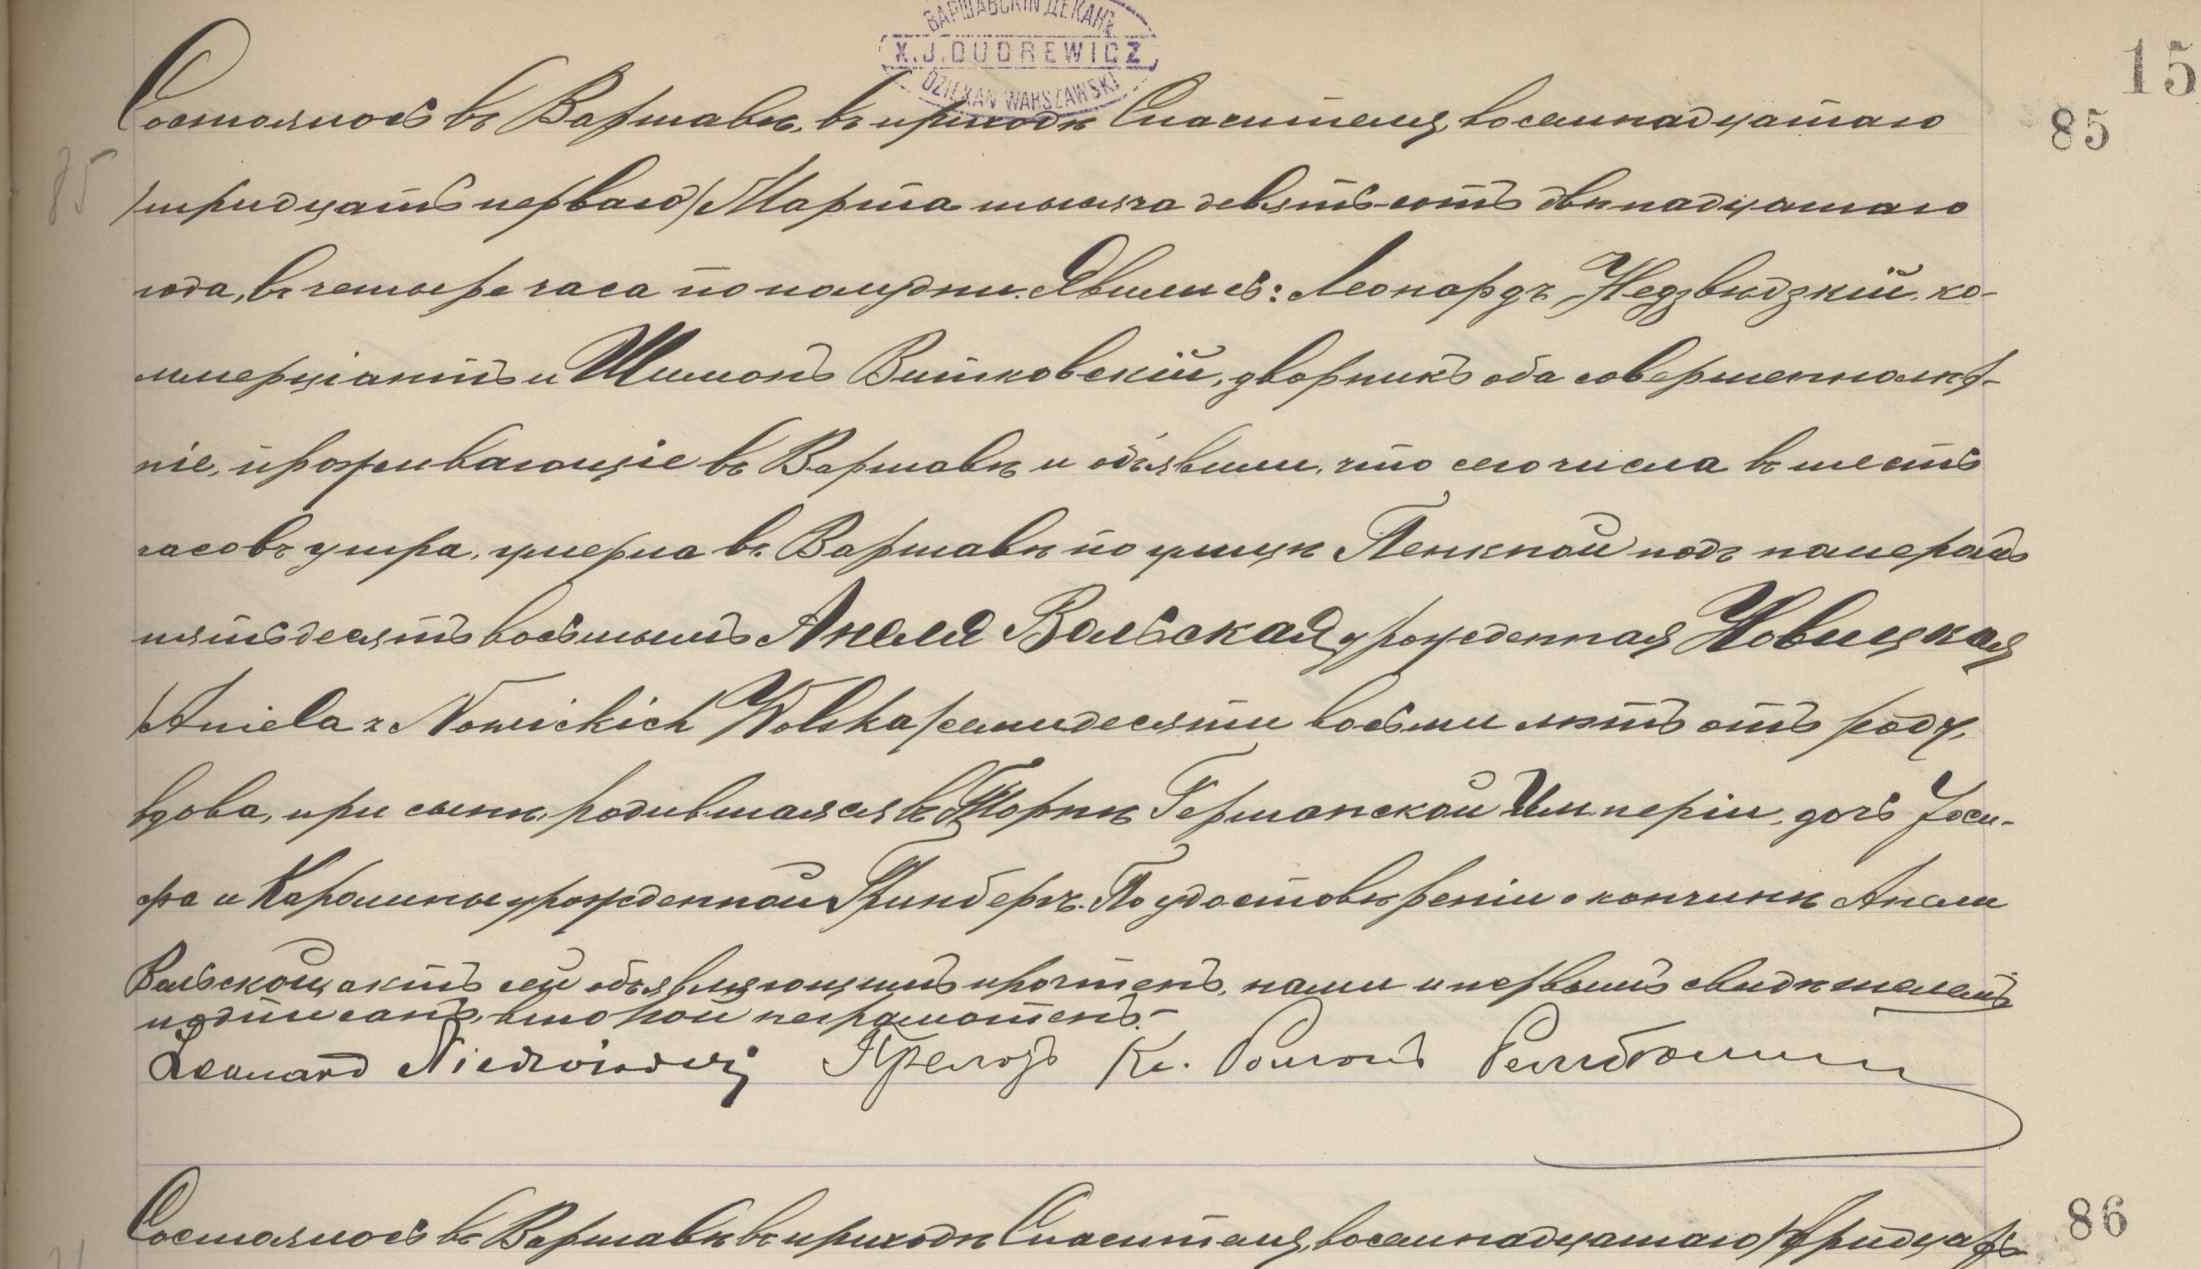 ВАРШАВСКІЙ ДЕКАНЪ
X. J. DUDREWICZ
DZIEKAN WARSZAWSKI
15
85
85
Состоялось въ Варшавѣ, въ приходѣ Спасителя, восемнадцатаго
/тридцать перваго/ Марта тысяча девятьсотъ двѣнадцатаго
года, въ четыре часа по полудни. Явились: Леонардъ Недзвѣдзкій, ко-
ммерціантъ и Шимонъ Витковскій, дворникъ оба совершеннолѣт-
ніе, проживающіе въ Варшавѣ и объявили, что сего числа въ шесть
часовъ утра, умерла въ Варшавѣ по улицѣ Пенкной подъ номеромъ
пятьдесятъ восьмымъ Анеля Вольская урожденная Новицкая
/Aniela z Nowickich Wolska/ семидесяти восьми лѣтъ отъ роду,
вдова, при сынѣ, родившаяся въ Торнѣ Германской Имперіи, дочь Іоси-
фа и Каролины урожденной Гринбергъ. По удостовѣреніи о кончинѣ Анели
Вольской, актъ сей объявляющимъ прочтенъ, нами и первымъ свидѣтелемъ
подписанъ, второй неграмотенъ.-
Leonard Niedźwiedzki Кс. Романъ Рембѣлинскій
86
Состоялось въ Варшавѣ въ приходѣ Спасителя, восемнадцатаго /тридцать